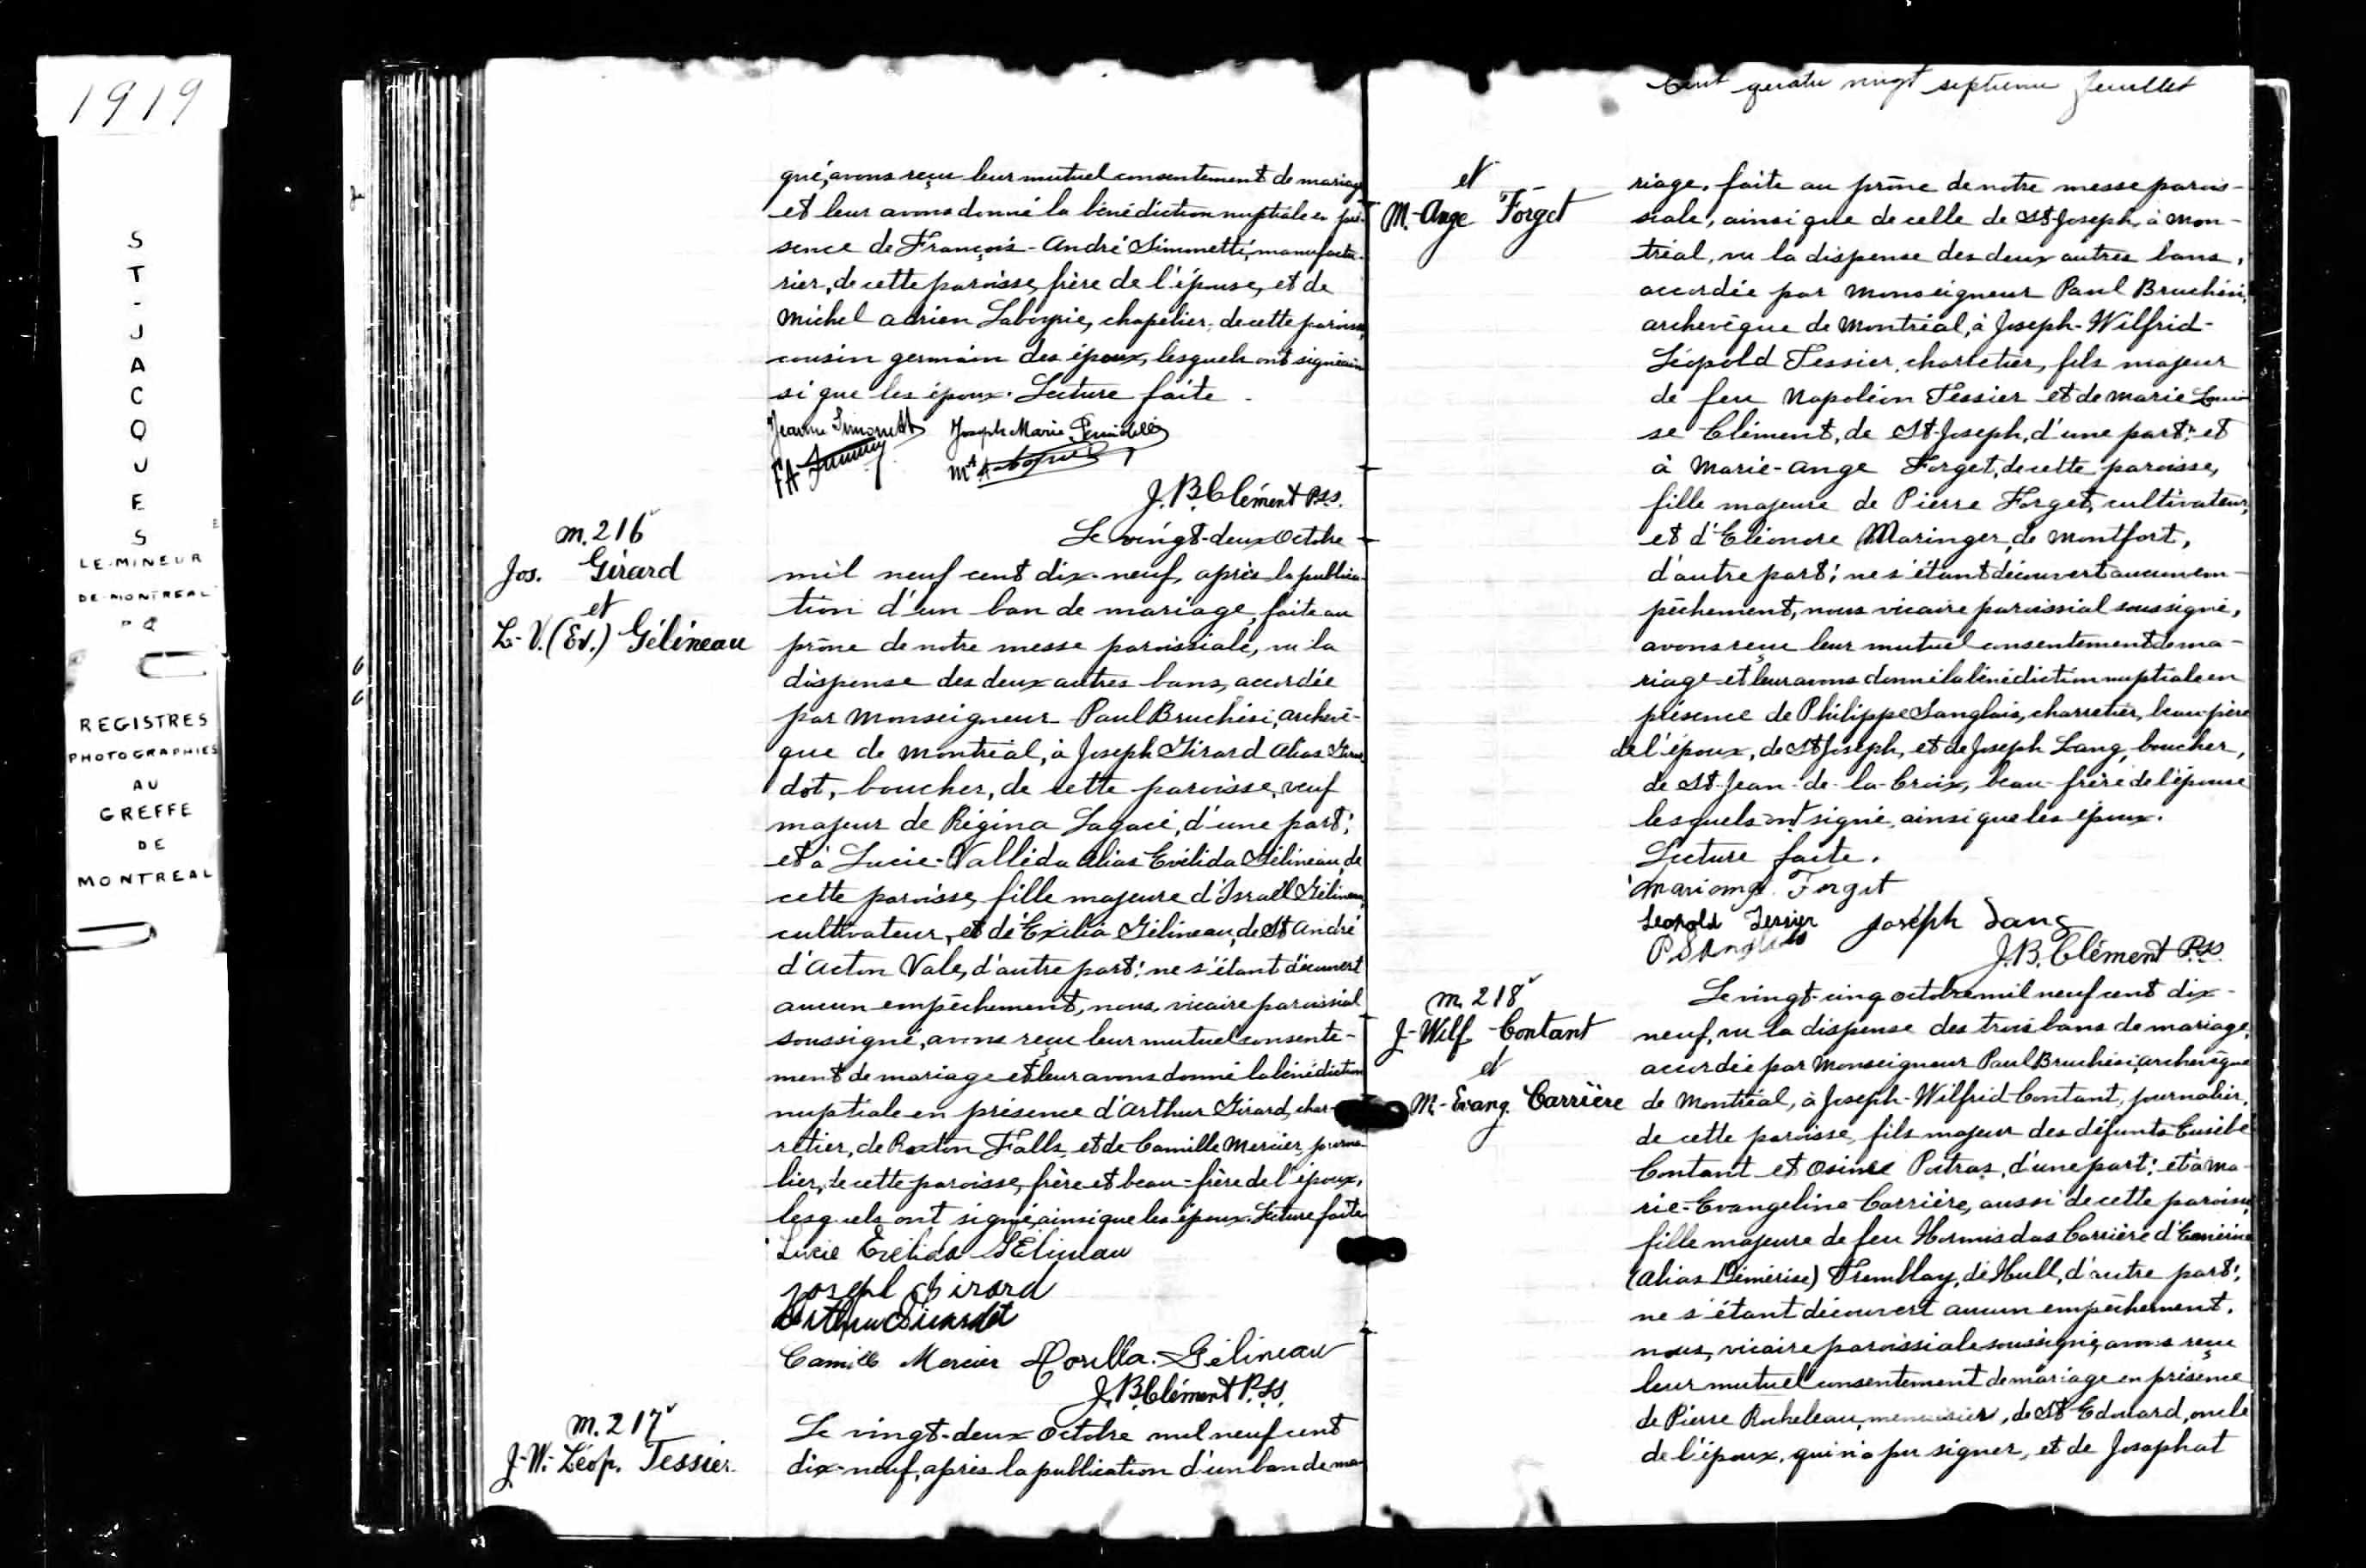 1919
ST-JACQUES
LE-MINEUR
DE-MONTREAL
P Q
REGISTRES
PHOTOGRAPHIES
AU
GREFFE
DE
MONTREAL
gné, avons reçu leur mutuel consentement de mariage
et leur avons donné la bénédiction nuptiale en pré-
sence de François-André Simmetti, manufactu-
rier, de cette paroisse, frère de l'épouse, et de
Michel Adrien Laboyrie, chapelier, de cette paroisse,
cousin germain des époux, lesquels ont signé ain
si que les époux. Lecture faite.
Jeanne Simonetti Joseph Marie
FA
J. B. Clément P.S.S.
m. 216
Jos. Girard
et
L.-V. (Ev.) Gélineau
Le vingt-deux Octobre
mil neuf cent dix-neuf, après la publica-
tion d'un ban de mariage, faite au
prône de notre messe paroissiale, vu la
dispense des deux autres bans, accordée
par Monseigneur Paul Bruchési, archevê-
que de Montréal, à Joseph Girard alias Girar
dot, boucher, de cette paroisse, veuf
majeur de Régina Lagacé, d'une part;
et à Lucie-Valléda alias Evélida Gélineau, de
cette paroisse, fille majeure d'Israël Gélineau,
cultivateur, et de Exilia Gélineau, de St André
d'Acton Vale, d'autre part; ne s'étant découvert
aucun empêchement, nous, vicaire paroissial
soussigné, avons reçu leur mutuel consente-
ment de mariage et leur avons donné la bénédiction
nuptiale en présence d'Arthur Girard, char-
retier, de Roxton Falls, et de Camille Mercier, journa-
lier, de cette paroisse, frère et beau-frère de l'époux,
lesquels ont signé, ainsi que les époux. Lecture faite
Lucie Evélida Gélineau
Joseph Girard
Arthur Girardot
Camille Mercier Gélineau
J. B. Clément P.S.S.
m. 217
J.-W.-Léop. Tessier
Le vingt-deux Octobre mil neuf cent
dix-neuf, après la publication d'un ban de ma-
Cent quatre vingt septieme feuillet
et
M.-Ange Forget
riage, faite au prône de notre messe parois-
siale, ainsi que de celle de St-Joseph, à Mon-
tréal, vu la dispense des deux autres bans,
accordée par Monseigneur Paul Bruchési,
archevêque de Montréal, à Joseph-Wilfrid-
Léopold Tessier, charretier, fils majeur
de feu Napoléon Tessier et de Marie Loui
se Clément, de St-Joseph, d'une part; et
à Marie-Ange Forget, de cette paroisse,
fille majeure de Pierre Forget, cultivateur,
et d'Eléonore Maringer, de Montfort,
d'autre part; ne s'étant découvert aucun em-
pêchement, nous vicaire paroissial soussigné,
avons reçu leur mutuel consentement de ma-
riage et leur avons donné la bénédiction nuptiale en
présence de Philippe Langlais, charretier, beau-père
de l'époux, de St Joseph, et de Joseph Lang, boucher,
de St-Jean-de-la-Croix, beau-frère de l'épouse
lesquels ont signé, ainsi que les époux.
Lecture faite.
Mariange Forget
Leopold Tessier Joseph Lang
P. Langlais
J. B. Clément P.S.S.
m. 218
J-Wilf. Contant
et
M.-Evang. Carrière
Le vingt-cinq octobre mil neuf cent dix-
neuf, vu la dispense des trois bans de mariage,
accordée par Monseigneur Paul Bruchési, archevêque
de Montréal, à Joseph-Wilfrid Contant, journalier,
de cette paroisse, fils majeur des défunts Eusèbe
Contant et Osine Poitras, d'une part; et à Ma-
rie-Evangeline Carrière, aussi de cette paroisse,
fille majeure de feu Hormisdas Carrière d'Emérine
(alias Démérise) Tremblay, de Hull, d'autre part;
ne s'étant découvert aucun empêchement,
nous, vicaire paroissiale soussigné, avons reçu
leur mutuel consentement de mariage en présence
de Pierre Rocheleau, menuisier, de St Edouard, oncle
de l'époux, qui n'a pu signer, et de Josaphat